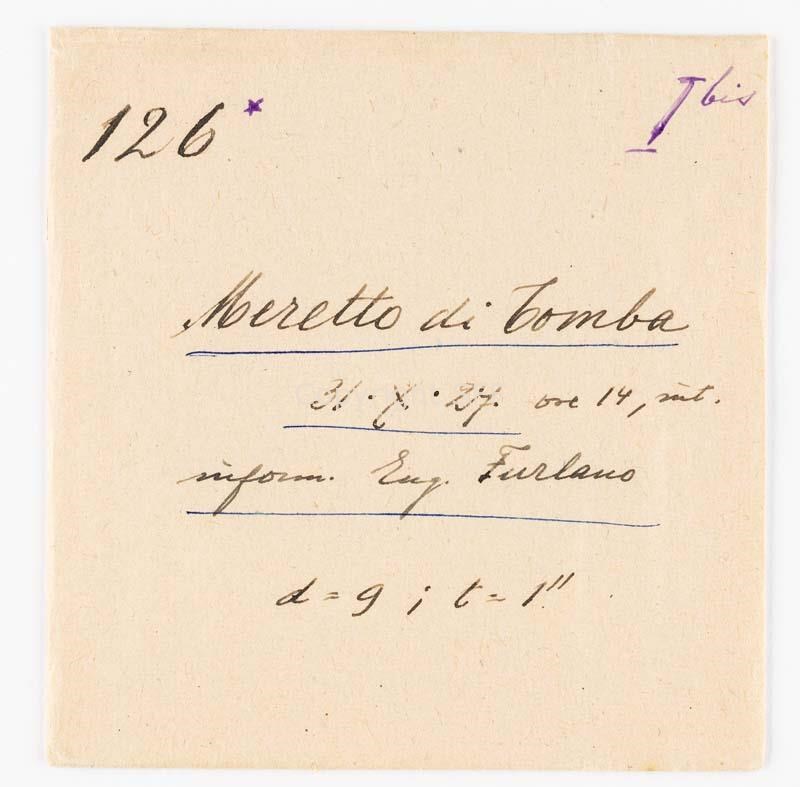 126*
I bis
Meretto di Tomba
31·X·27. ore 14, int.
inform. Eug. Furlano
d = 9 ; t = 1"